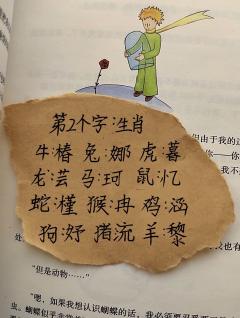 但由于我的
第2个字:生肖
牛:椿 兔:娜 虎:暮
龙:芸 马:珂 鼠:忆
蛇:槿 猴:冉 鸡:涵
狗:妤 猪:流 羊:黎
"但是动物……"
"嗯，如果我想认识蝴蝶的话，我必须要忍受
虫。蝴蝶似乎非常